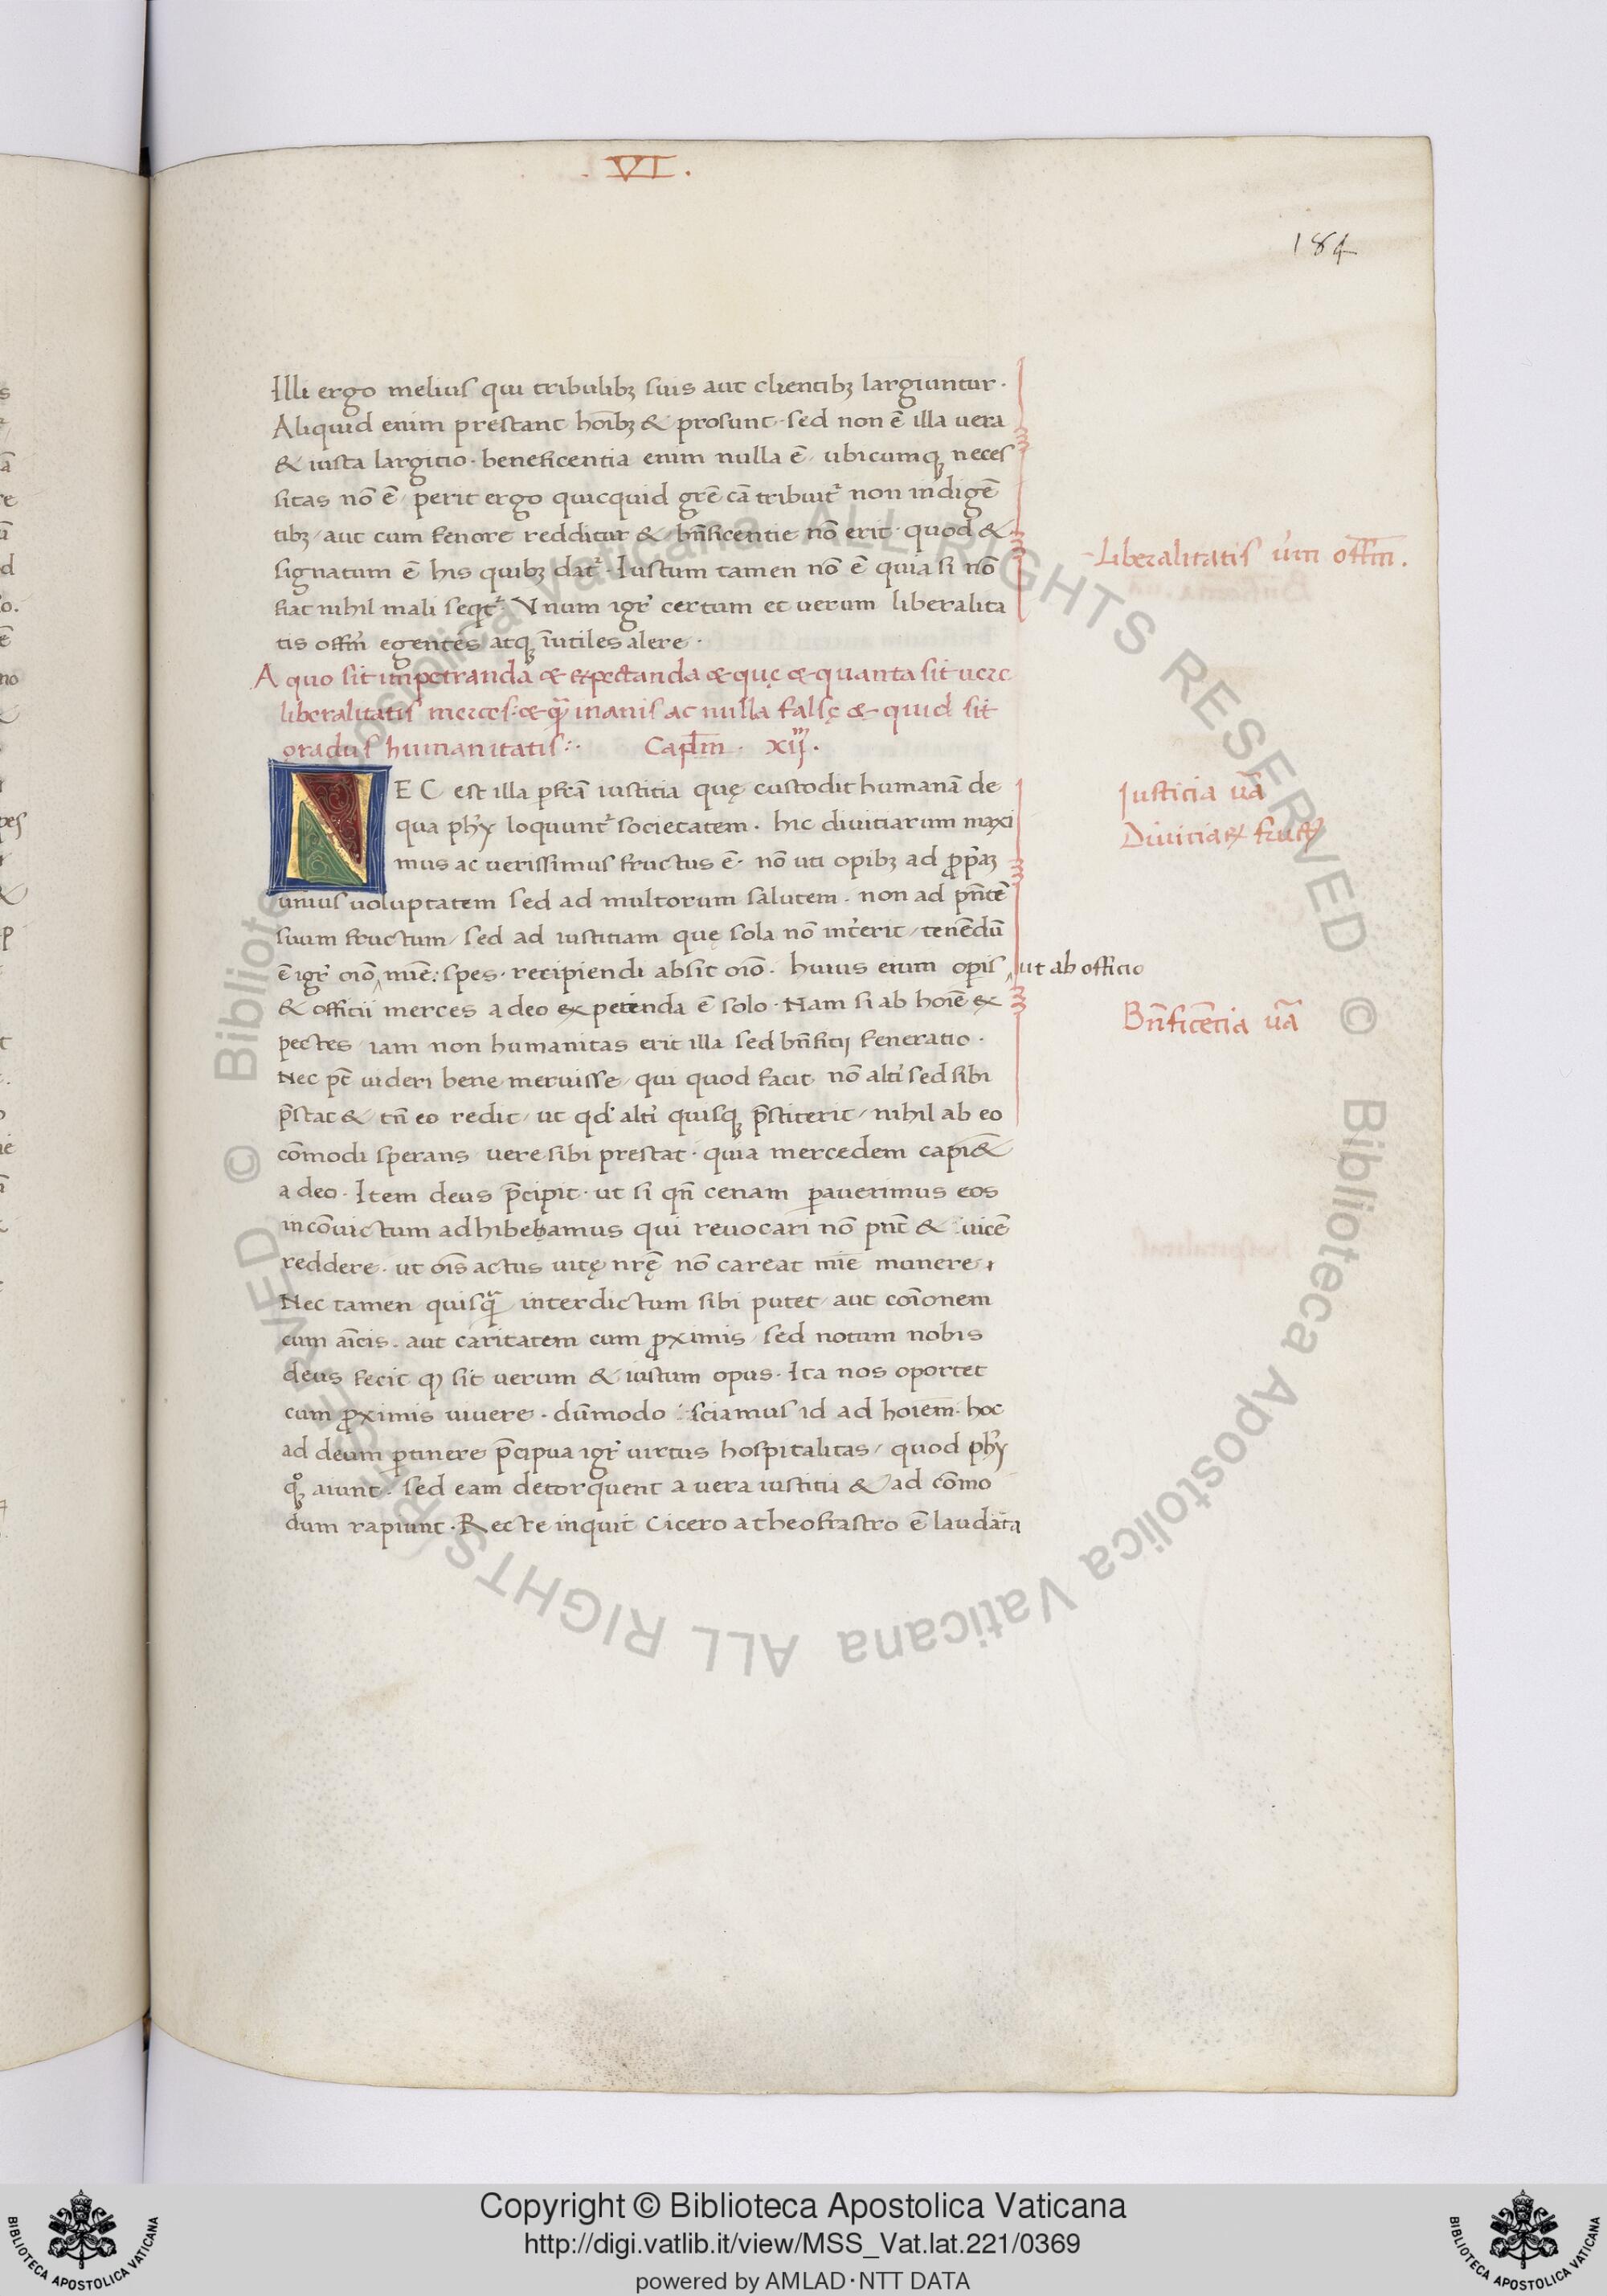 .VI.
184
Illi ergo melius qui tribulibꝫ suis aut clientibꝫ largiuntur.
Aliquid enim prestant hoībꝫ & prosunt. sed non ē illa uera
& iusta largitio. beneficentia enim nulla ē. ubicumqꝫ neces
sitas nō ē perit ergo quicquid grē cā tribuit᷑ non indigē
tibꝫ aut cum fenore redditur & bn̄ficentie nō erit. quod &
signatum ē his quibꝫ dat᷑. Iustum tamen nō ē quia si nō
fiat nihil mali seqt᷑. Vnum igr̄ certum et uerum liberalita
tis offm̄ egentes atqꝫ īutiles alere.
Liberalitatis uꝰm offm̄.
A quo sit impetranda & expectanda & quę & quanta sit uere
liberalitatis merces. & qͣ̄ inanis ac nulla falsę & quid sit
gradus humanitatis:. Capl̄m. xijͫ.
EC est illa pfcā iustitia quę custodit humanā de
qua ph̄y loquunt᷑ societatem. hic diuitiarum maxi
mus ac uerissimus fructus ē. nō uti opibꝫ ad ꝓp̄aꝫ
unius uoluptatem sed ad multorum salutem. non ad pn̄tē
suum fructum sed ad iustitiam quę sola nō int̓erit tenēdū
ē igr̄ oīo ‸ mīē: spes. recipiendi absit oīo. huius enim opis ‸ ut ab officio
& officii merces a deo expetenda ē solo. Nam si ab hoīē ex
pectes iam non humanitas erit illa sed bn̄fitij feneratio.
Nec pt̄ uideri bene meruisse qui quod facit nō alt̓i sed sibi
p̄stat & tn̄ eo redit ut qd̓ alt̓i quisqꝫ p̄stiterit nihil ab eo
cōmodi sperans uere sibi prestat. quia mercedem capi&
a deo. Item deus p̄cipit. ut si qn̄ cenam ꝑauerimus eos
in cōuictum adhibebamus qui reuocari nō pn̄t & uicē
reddere. ut oīs actus uitę nr̄ę nō careat mīe munere.
Nec tamen quisqͣ̄ interdictum sibi putet aut coīonem
cum aīcis. aut caritatem cum ꝓximis sed notum nobis
deus fecit ꝙ sit uerum & iustum opus. Ita nos oportet
cum ꝓximis uiuere. dūmodo sciamus id ad hoīem. hoc
ad deum ꝑtinere p̄cipua igr̄ uirtus hospitalitas quod ph̄y
qͦꝫ aiunt. sed eam detorquent a uera iustitia & ad cōmo
dum rapiunt. Recte inquit Cicero a theofrastro ē laudata
Iusticia uā
Diuitiaꝝ fruct᷒
Bn̄ficētia uā
Copyright © Biblioteca Apostolica Vaticana
http://digi.vatlib.it/view/MSS_Vat.lat.221/0369
powered by AMLAD·NTT DATA
BIBLIOTECA APOSTOLICA VATICANA
BIBLIOTECA APOSTOLICA VATICANA
© Biblioteca Apostolica Vaticana ALL RIGHTS RESERVED © Biblioteca Apostolica Vaticana ALL RIGHTS RESERVED